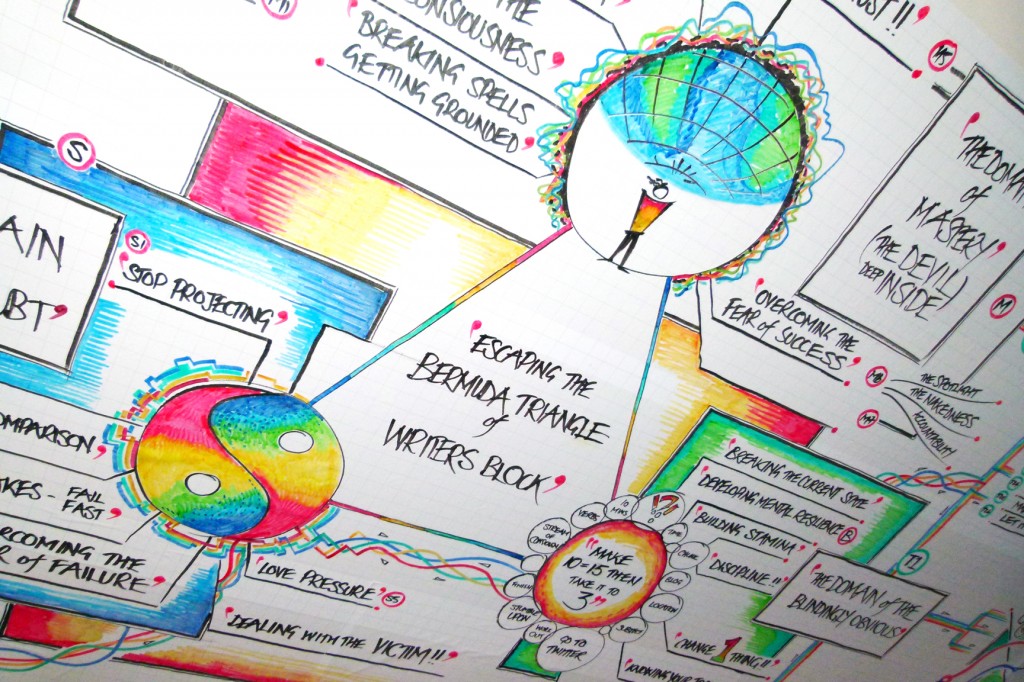 THE
CONSIOUSNESS
BREAKING SPELLS
GETTING GROUNDED
UST!!
M5
'THE DOMAIN
of
MASTERY'
(THE DEVIL)
DEEP INSIDE
M
S
AIN
UBT'
S1
'STOP PROJECTING'
'ESCAPING THE
BERMUDA TRIANGLE
of
WRITERS BLOCK'
'OVERCOMING THE
FEAR OF SUCCESS'
M8
THE SPOTLIGHT
THE NAKEDNESS
ACCOUNTABILITY
COMPARISON'
KES - FAIL
FAST'
RCOMING THE
R of FAILURE'
'LOVE PRESSURE'
S5
'DEALING WITH THE VICTIM!!'
'BREAKING THE CURRENT STATE
DEVELOPING MENTAL RESILIENCE
B
'BUILDING STAMINA'
'DISCIPLINE!!
'CHANGE 1 THING!!'
T2
'THE DOMAIN OF THE
BLINDINGLY OBVIOUS'
"MAKE
10=15 THEN
TAKE IT TO
3"
VERBS
10
MINS
TIME
BLOG
LOCATION
GO TO
TWITTER
WORK
OUT
STUMBLE
UPON
STREAM
OF
LET